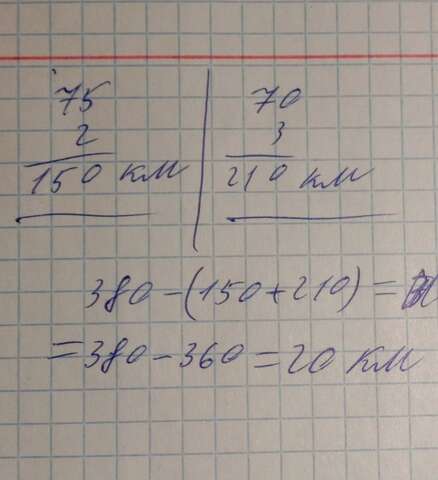 75
2
150 км
70
3
210 км
380 - (150 + 210) =
= 380 - 360 = 20 км